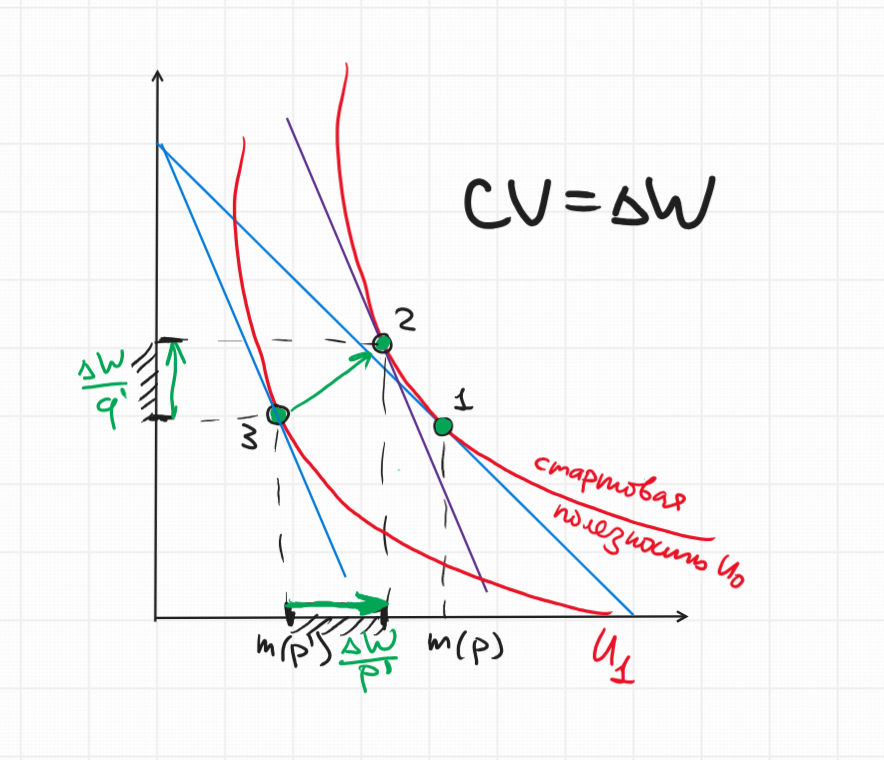 CV=ΔW
2
1
3
ΔW
q'
стартовая
полезность U₀
m(p')
ΔW
p'
m(p)
U₁